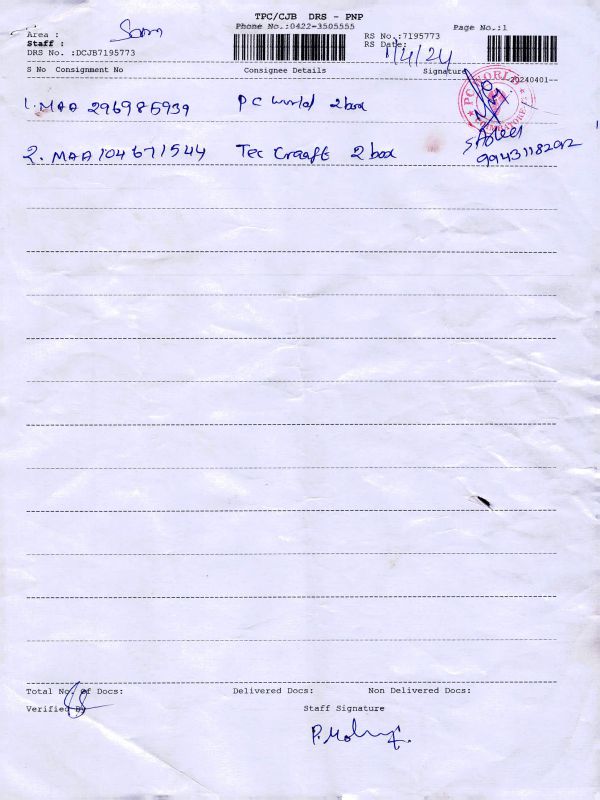 TPC/CJB DRS - PNP
Phone No.:0422-3505555
Page No.:1
Area :
RS No.:7195773
Staff :
RS Date: 1/4/24
DRS No. :DCJB7195773
S No Consignment No Consignee Details Signature
--20240401--
1. MAA 296985939 PC World 2 box
PC WORLD
COIMBATORE
2. MAA 104671544 Tec Craaft 2 box
9943118292
Total No. of Docs: Delivered Docs: Non Delivered Docs:
Verified By
Staff Signature